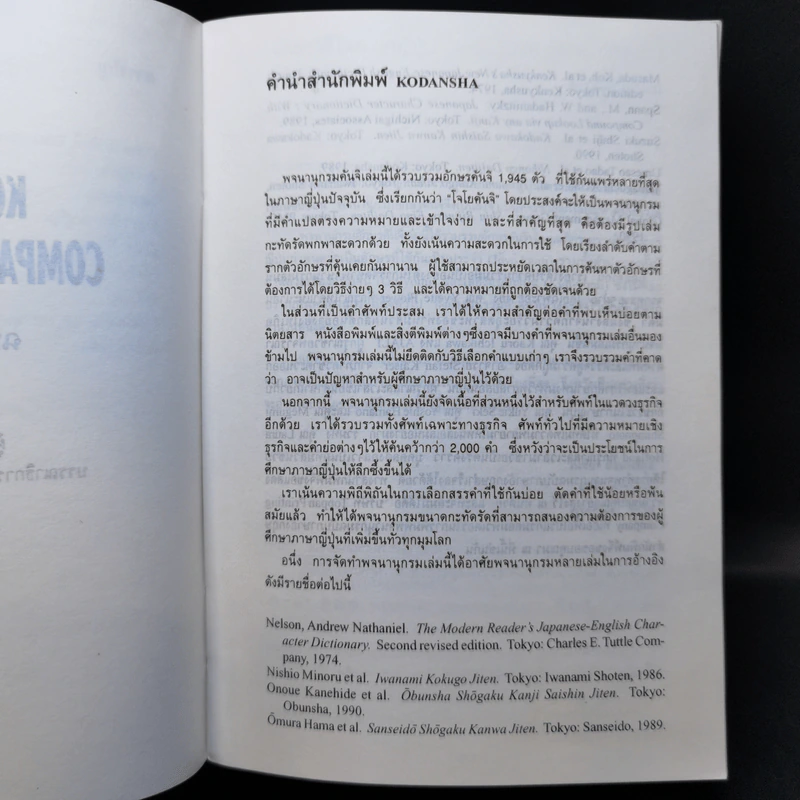 คำนำสำนักพิมพ์ KODANSHA
พจนานุกรมคันจิเล่มนี้ได้รวบรวมอักษรคันจิ 1,945 ตัว ที่ใช้กันแพร่หลายที่สุด
ในภาษาญี่ปุ่นปัจจุบัน ซึ่งเรียกกันว่า "โจโยคันจิ" โดยประสงค์จะให้เป็นพจนานุกรม
ที่มีคำแปลตรงความหมายและเข้าใจง่าย และที่สำคัญที่สุด คือต้องมีรูปเล่ม
กะทัดรัดพกพาสะดวกด้วย ทั้งยังเน้นความสะดวกในการใช้ โดยเรียงลำดับคำตาม
รากตัวอักษรที่คุ้นเคยกันมานาน ผู้ใช้สามารถประหยัดเวลาในการค้นหาตัวอักษรที่
ต้องการได้โดยวิธีง่ายๆ 3 วิธี และได้ความหมายที่ถูกต้องชัดเจนด้วย
ในส่วนที่เป็นคำศัพท์ประสม เราได้ให้ความสำคัญต่อคำที่พบเห็นบ่อยตาม
นิตยสาร หนังสือพิมพ์และสิ่งตีพิมพ์ต่างๆซึ่งอาจมีบางคำที่พจนานุกรมเล่มอื่นมอง
ข้ามไป พจนานุกรมเล่มนี้ไม่ยึดติดกับวิธีเลือกคำแบบเก่าๆ เราจึงรวบรวมคำที่คาด
ว่า อาจเป็นปัญหาสำหรับผู้ศึกษาภาษาญี่ปุ่นไว้ด้วย
นอกจากนี้ พจนานุกรมเล่มนี้ยังจัดเนื้อที่ส่วนหนึ่งไว้สำหรับศัพท์ในแวดวงธุรกิจ
อีกด้วย เราได้รวบรวมทั้งศัพท์เฉพาะทางธุรกิจ ศัพท์ทั่วไปที่มีความหมายเชิง
ธุรกิจและคำย่อต่างๆไว้ให้ค้นคว้ากว่า 2,000 คำ ซึ่งหวังว่าจะเป็นประโยชน์ในการ
ศึกษาภาษาญี่ปุ่นให้ลึกซึ้งขึ้นได้
เราเน้นความพิถีพิถันในการเลือกสรรคำที่ใช้กันบ่อย ตัดคำที่ใช้น้อยหรือพ้น
สมัยแล้ว ทำให้ได้พจนานุกรมขนาดกะทัดรัดที่สามารถสนองความต้องการของผู้
ศึกษาภาษาญี่ปุ่นที่เพิ่มขึ้นทั่วทุกมุมโลก
อนึ่ง การจัดทำพจนานุกรมเล่มนี้ได้อาศัยพจนานุกรมหลายเล่มในการอ้างอิง
ดังมีรายชื่อต่อไปนี้
Nelson, Andrew Nathaniel. The Modern Reader's Japanese-English Char-
acter Dictionary. Second revised edition. Tokyo: Charles E. Tuttle Com-
pany, 1974.
Nishio Minoru et al. Iwanami Kokugo Jiten. Tokyo: Iwanami Shoten, 1986.
Onoue Kanehide et al. Ōbunsha Shōgaku Kanji Saishin Jiten. Tokyo:
Obunsha, 1990.
Ōmura Hama et al. Sanseidō Shōgaku Kanwa Jiten. Tokyo: Sanseido, 1989.